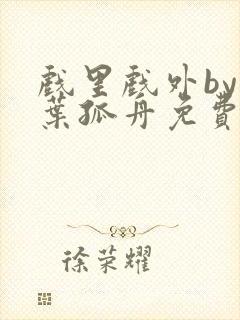 戏里戏外by一
葉孤舟免費
徐荣耀